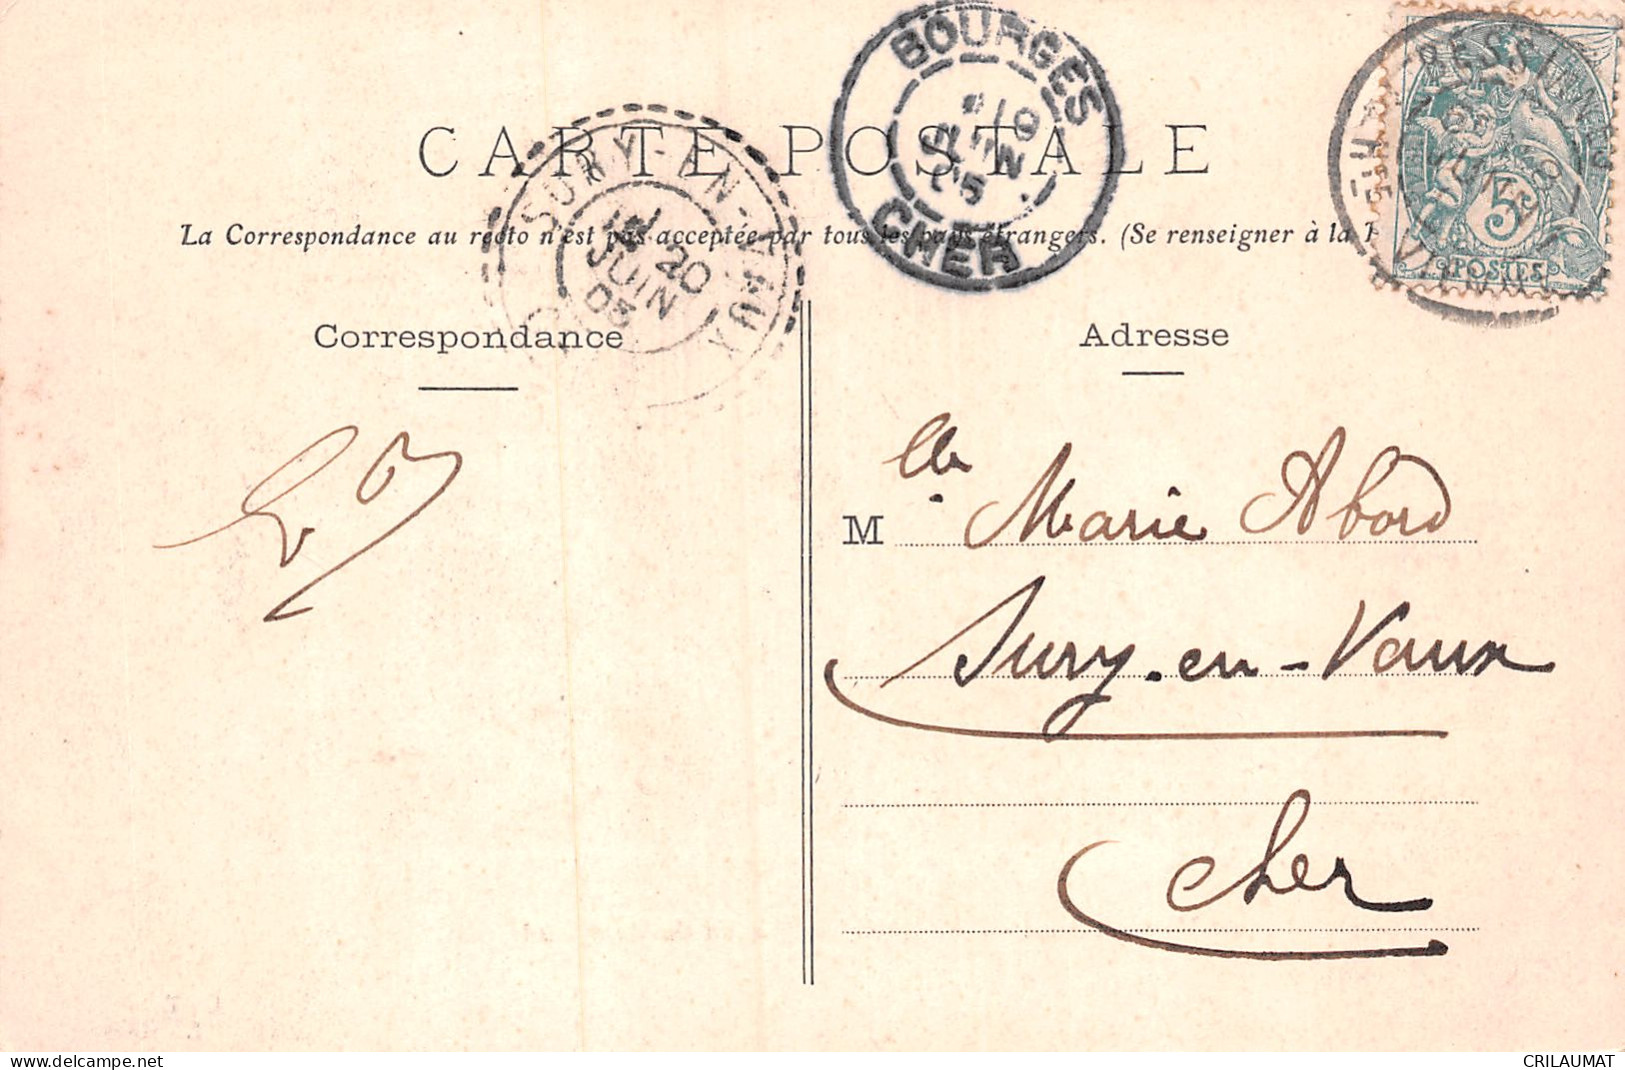 CARTE POSTALE
La Correspondance au recto n'est pas acceptée par tous les pays étrangers. (Se renseigner à la
Correspondance
Adresse
BOURGES
CHER
SURY-EN-VAUX
20
JUIN
05
5
POSTES
M lle Marie Abord
Sury-en-Vaux
Cher
www.delcampe.net
CRILAUMAT